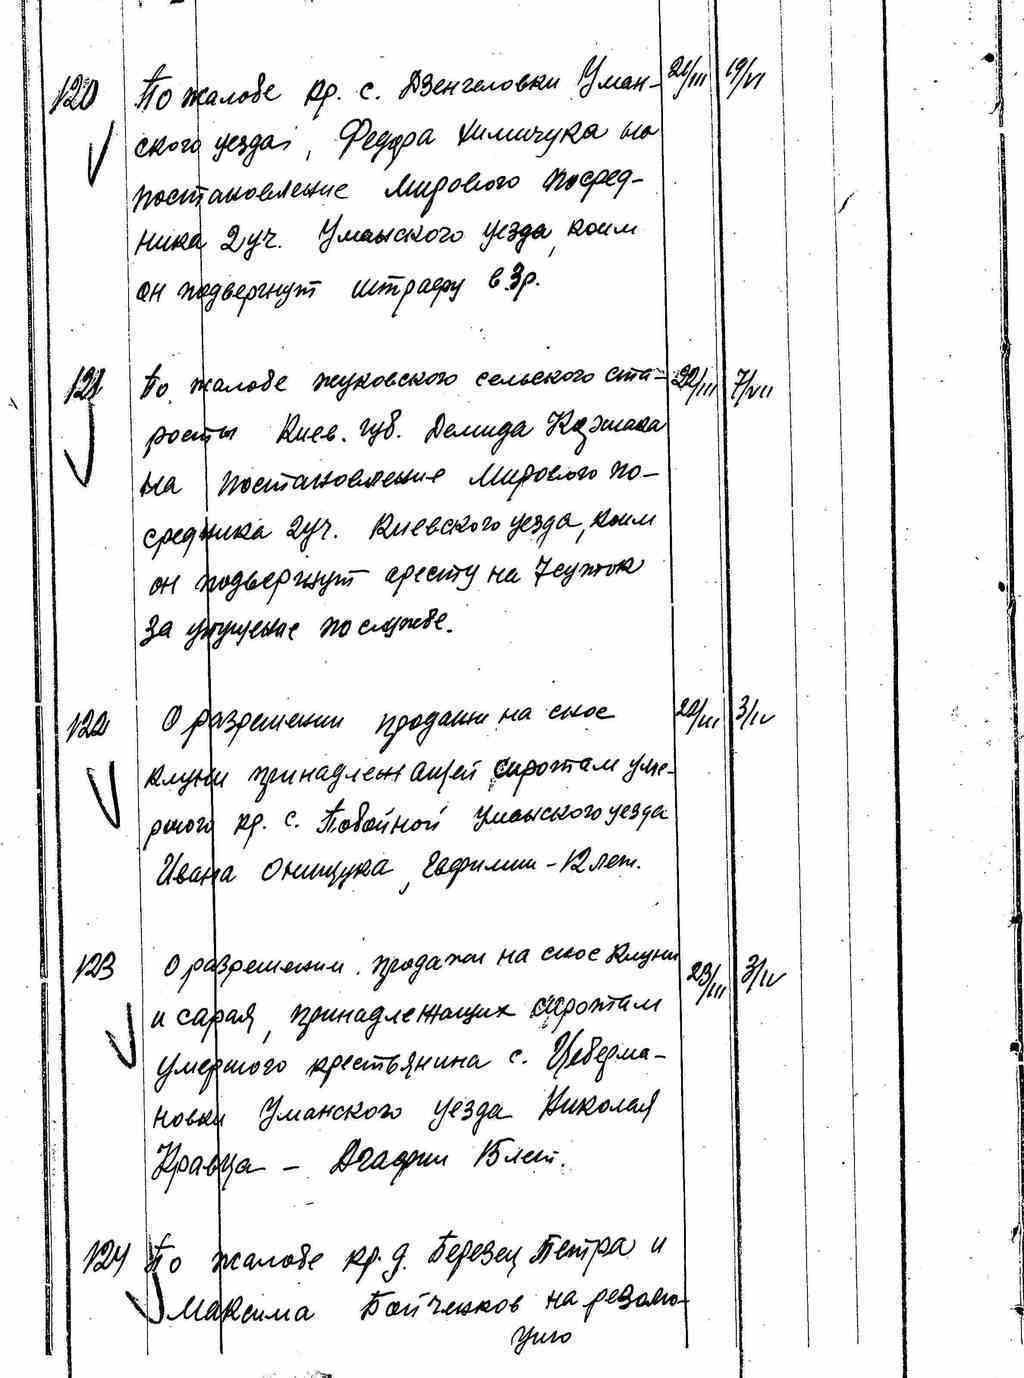 120 По жалобе кр. с. Дзенгеловки Уман- 21/III 19/VI
ского уезда, Федора Химичука на
постановление Мирового посред-
ника 2 уч. Уманского уезда, коим
он подвергнут штрафу в 3 р.
121 По жалобе жуковского сельского ста- 22/III 7/VII
росты Киев. губ. Демида
на постановление Мирового по-
средника 2 уч. Киевского уезда, коим
он подвергнут аресту на 7 суток
за упущение по службе.
122 О разрешении продажи на снос 20/III 3/IV
клуни принадлежащей сиротам уме-
ршего кр. с. Побойной Уманского уезда
Ивана Онищука, Евфимии - 12 лет.
123 О разрешении продажи на снос клуни 23/III 3/IV
и сарая, принадлежащих сиротам
умершего крестьянина с. Цеберма-
новки Уманского уезда Николая
Кравца - Агафии 15 лет.
124 По жалобе кр. д. Березец Петра и
Максима Бойченков на резолю-
цию